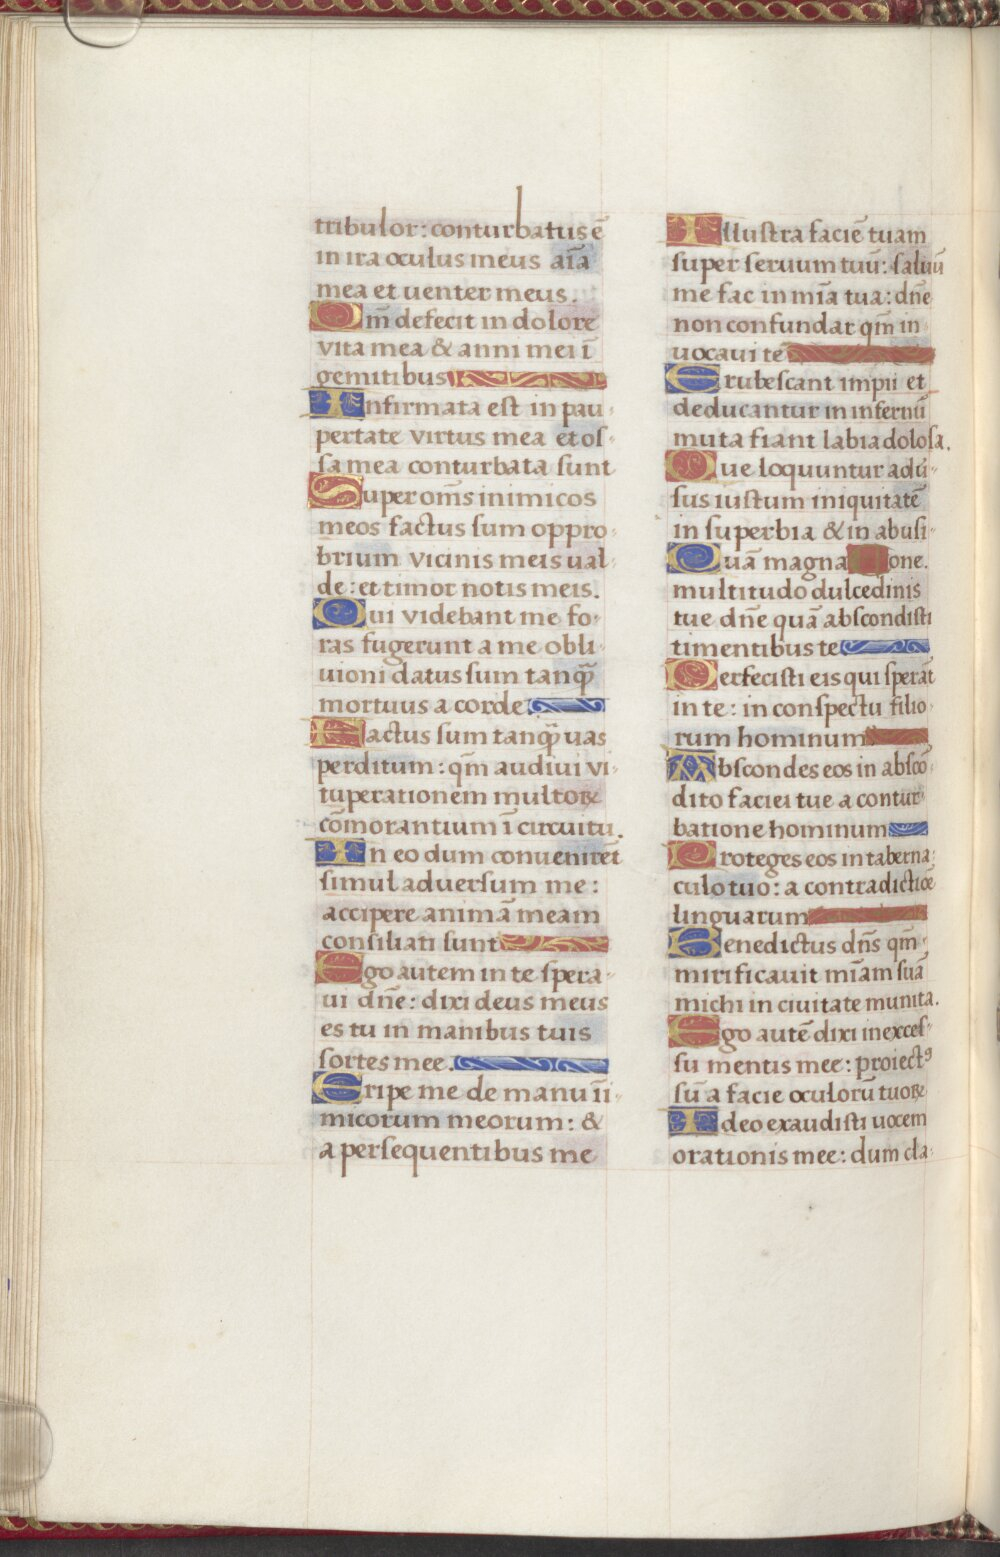 tribulor: conturbatus ē
in ira oculus meus aīa
mea et uenter meus.
Qm̄ defecit in dolore
vita mea & anni mei ī
gemitibus
Infirmata est in pau-
pertate virtus mea et os-
sa mea conturbata sunt
Super om̄s inimicos
meos factus sum oppro-
brium vicinis meis ual-
de: et timor notis meis.
Qui videbant me fo-
ras fugerunt a me obli-
uioni datus sum tanq̄
mortuus a corde
Factus sum tanq̄ uas
perditum: qm̄ audiui vi-
tuperationem multoꝝ
cōmorantium ī circuitu.
In eo dum convenirēt
simul adversum me:
accipere animā meam
consiliati sunt
Ego autem in te spera-
ui dn̄e: dixi deus meus
es tu in manibus tuis
sortes mee.
Eripe me de manu īi-
micorum meorum: &
a persequentibus me
Illustra faciē tuam
super seruum tuū: saluū
me fac in mīa tua: dn̄e
non confundar qm̄ in-
uocaui te
Erubescant impii et
deducantur in infernū
muta fiant labia dolosa.
Que loquuntur adū-
sus iustum iniquitatē
in superbia & in abusi-
Quā magna one.
multitudo dulcedinis
tue dn̄e quā abscondisti
timentibus te
Perfecisti eis qui sperāt
in te: in conspectu filio-
rum hominum
Abscondes eos in abscō-
dito faciei tue a contur-
batione hominum
Proteges eos in taberna-
culo tuo: a contradictiōe
linguarum
Benedictus dn̄s qm̄
mirificauit mīam suā
michi in ciuitate munita.
Ego autē dixi in exces-
su mentis mee: proiectꝰ
sū a facie oculorū tuoꝝ
Ideo exaudisti uocem
orationis mee: dum cla-